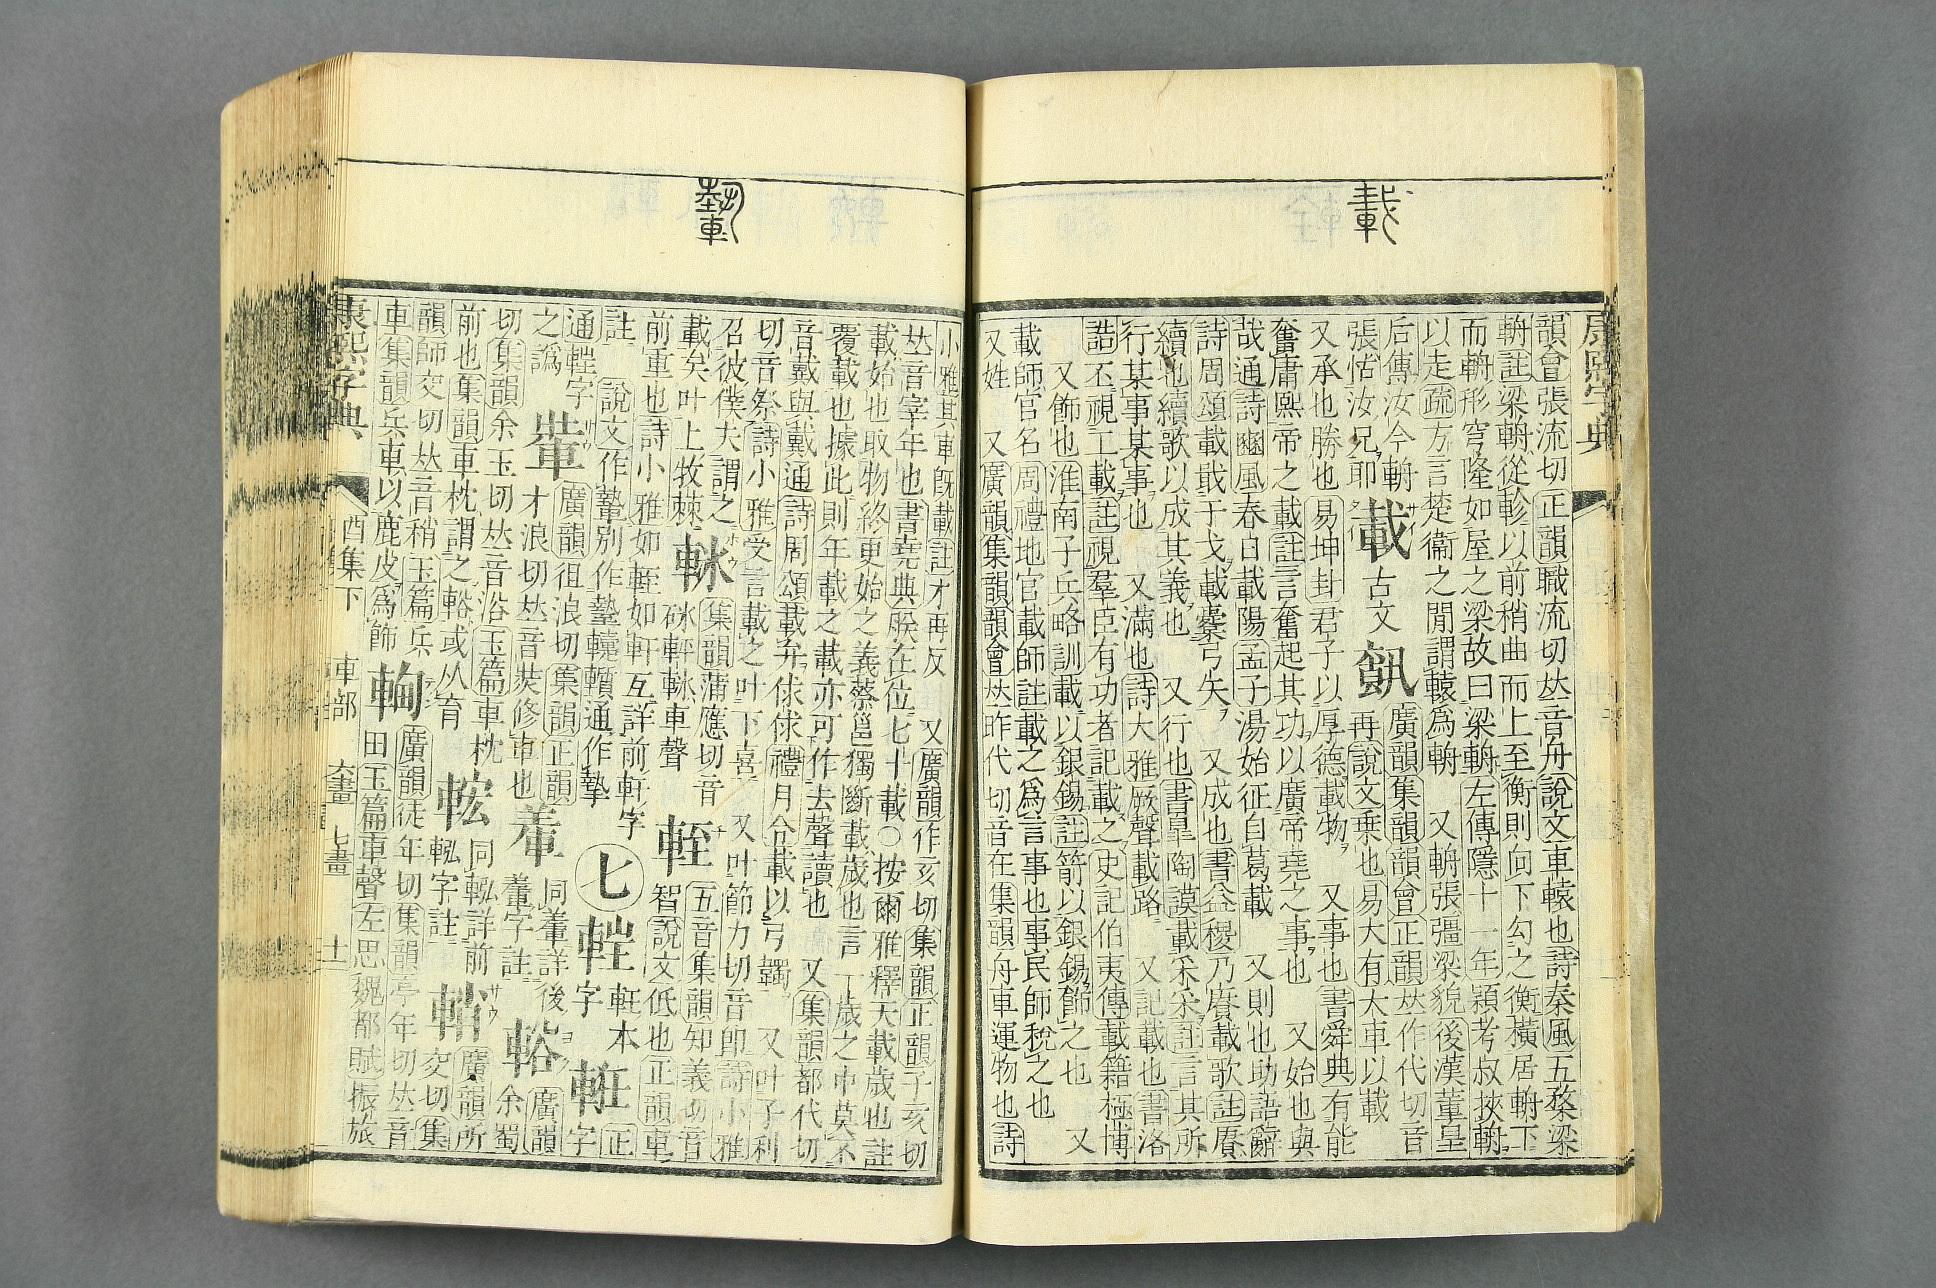 載
康熙字典
韻會張流切正韻職流切𠀤音舟說文車轅也詩秦風五楘梁
輈註梁輈從軫以前稍曲而上至衡則向下勾之衡橫居輈下
而輈形穹隆如屋之梁故曰梁輈左傳隱十一年潁考叔挾輈
以走疏方言楚衞之閒謂轅爲輈 又輈張彊梁貌後漢董皇
后傳汝今輈
張怙汝兄耶 載 古文 𩛥 廣韻集韻韻會正韻𠀤作代切音
再說文乘也易大有大車以載
又承也勝也易坤封君子以厚德載物 又事也書舜典有能
奮庸熙帝之載註言奮起其功以廣帝堯之事也 又始也與
哉通詩豳風春日載陽孟子湯始征自葛載 又則也助語辭
詩周頌載戢干戈載櫜弓矢 又成也書益稷乃賡載歌註賡
續也續歌以成其義也 又行也書臯陶謨載采采註言其所
行某事某事也 又滿也詩大雅厥聲載路 又記載也書洛
誥丕視工載註視羣臣有功者記載之史記伯夷傳載籍極博
又飾也淮南子兵略訓載以銀錫註箭以銀錫飾之也 又
載師官名周禮地官載師註載之爲言事也事民師稅之也
又姓 又廣韻集韻韻會𠀤昨代切音在集韻舟車運物也詩
小雅其車旣載註才再反 又廣韻作亥切集韻正韻子亥切
𠀤音宰年也書堯典朕在位七十載○按爾雅釋天載歲也註
載始也取物終更始之義蔡邕獨斷載歲也言一歲之中莫不
覆載也據此則年載之載亦可作去聲讀也 又集韻都代切
音戴與戴通詩周頌載弁俅俅禮月令載以弓韣 又叶子利
切音祭詩小雅受言載之叶下喜 又叶節力切音卽詩小雅
召彼僕夫謂之
載矣叶上牧棘 䡊 集韻蒲應切音
砯軯䡊車聲 輊 五音集韻知義切音
智說文低也正韻車
前重也詩小雅如輊如軒互詳前軒字
註 說文作䡹別作蟄䡵轋通作摯 七 𨌅 軖本
字
正
字
通輊字
之譌 輂 廣韻徂浪切集韻正韻
才浪切𠀤音奘修車也
同輂詳後
輂字註 輍 廣韻
余蜀
切集韻余玉切𠀤音浴玉篇車枕
前也集韻車枕謂之輍或从育 䡌 同軚詳前
軚字註 輎 廣韻所
交切集
韻師交切𠀤音稍玉篇兵
車集韻兵車以鹿皮爲飾 䡘 廣韻徒年切集韻亭年切𠀤音
田玉篇車聲左思魏都賦振旅
康熙字典
酉集下
車部
六畫
七畫
十一